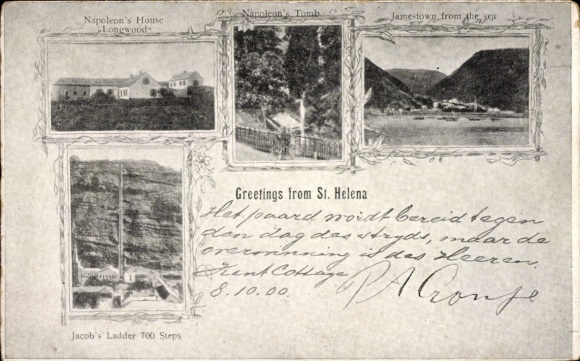 Napoleon's House
"Longwood"
Napoleon's Tomb
Jamestown from the sea
Greetings from St. Helena
Het paard wordt bereid tegen
den dag des stryds, maar de
overwinning is des Heeren
Kent Cottage
8.10.00.
P A Cronje
Jacob's Ladder 700 Steps